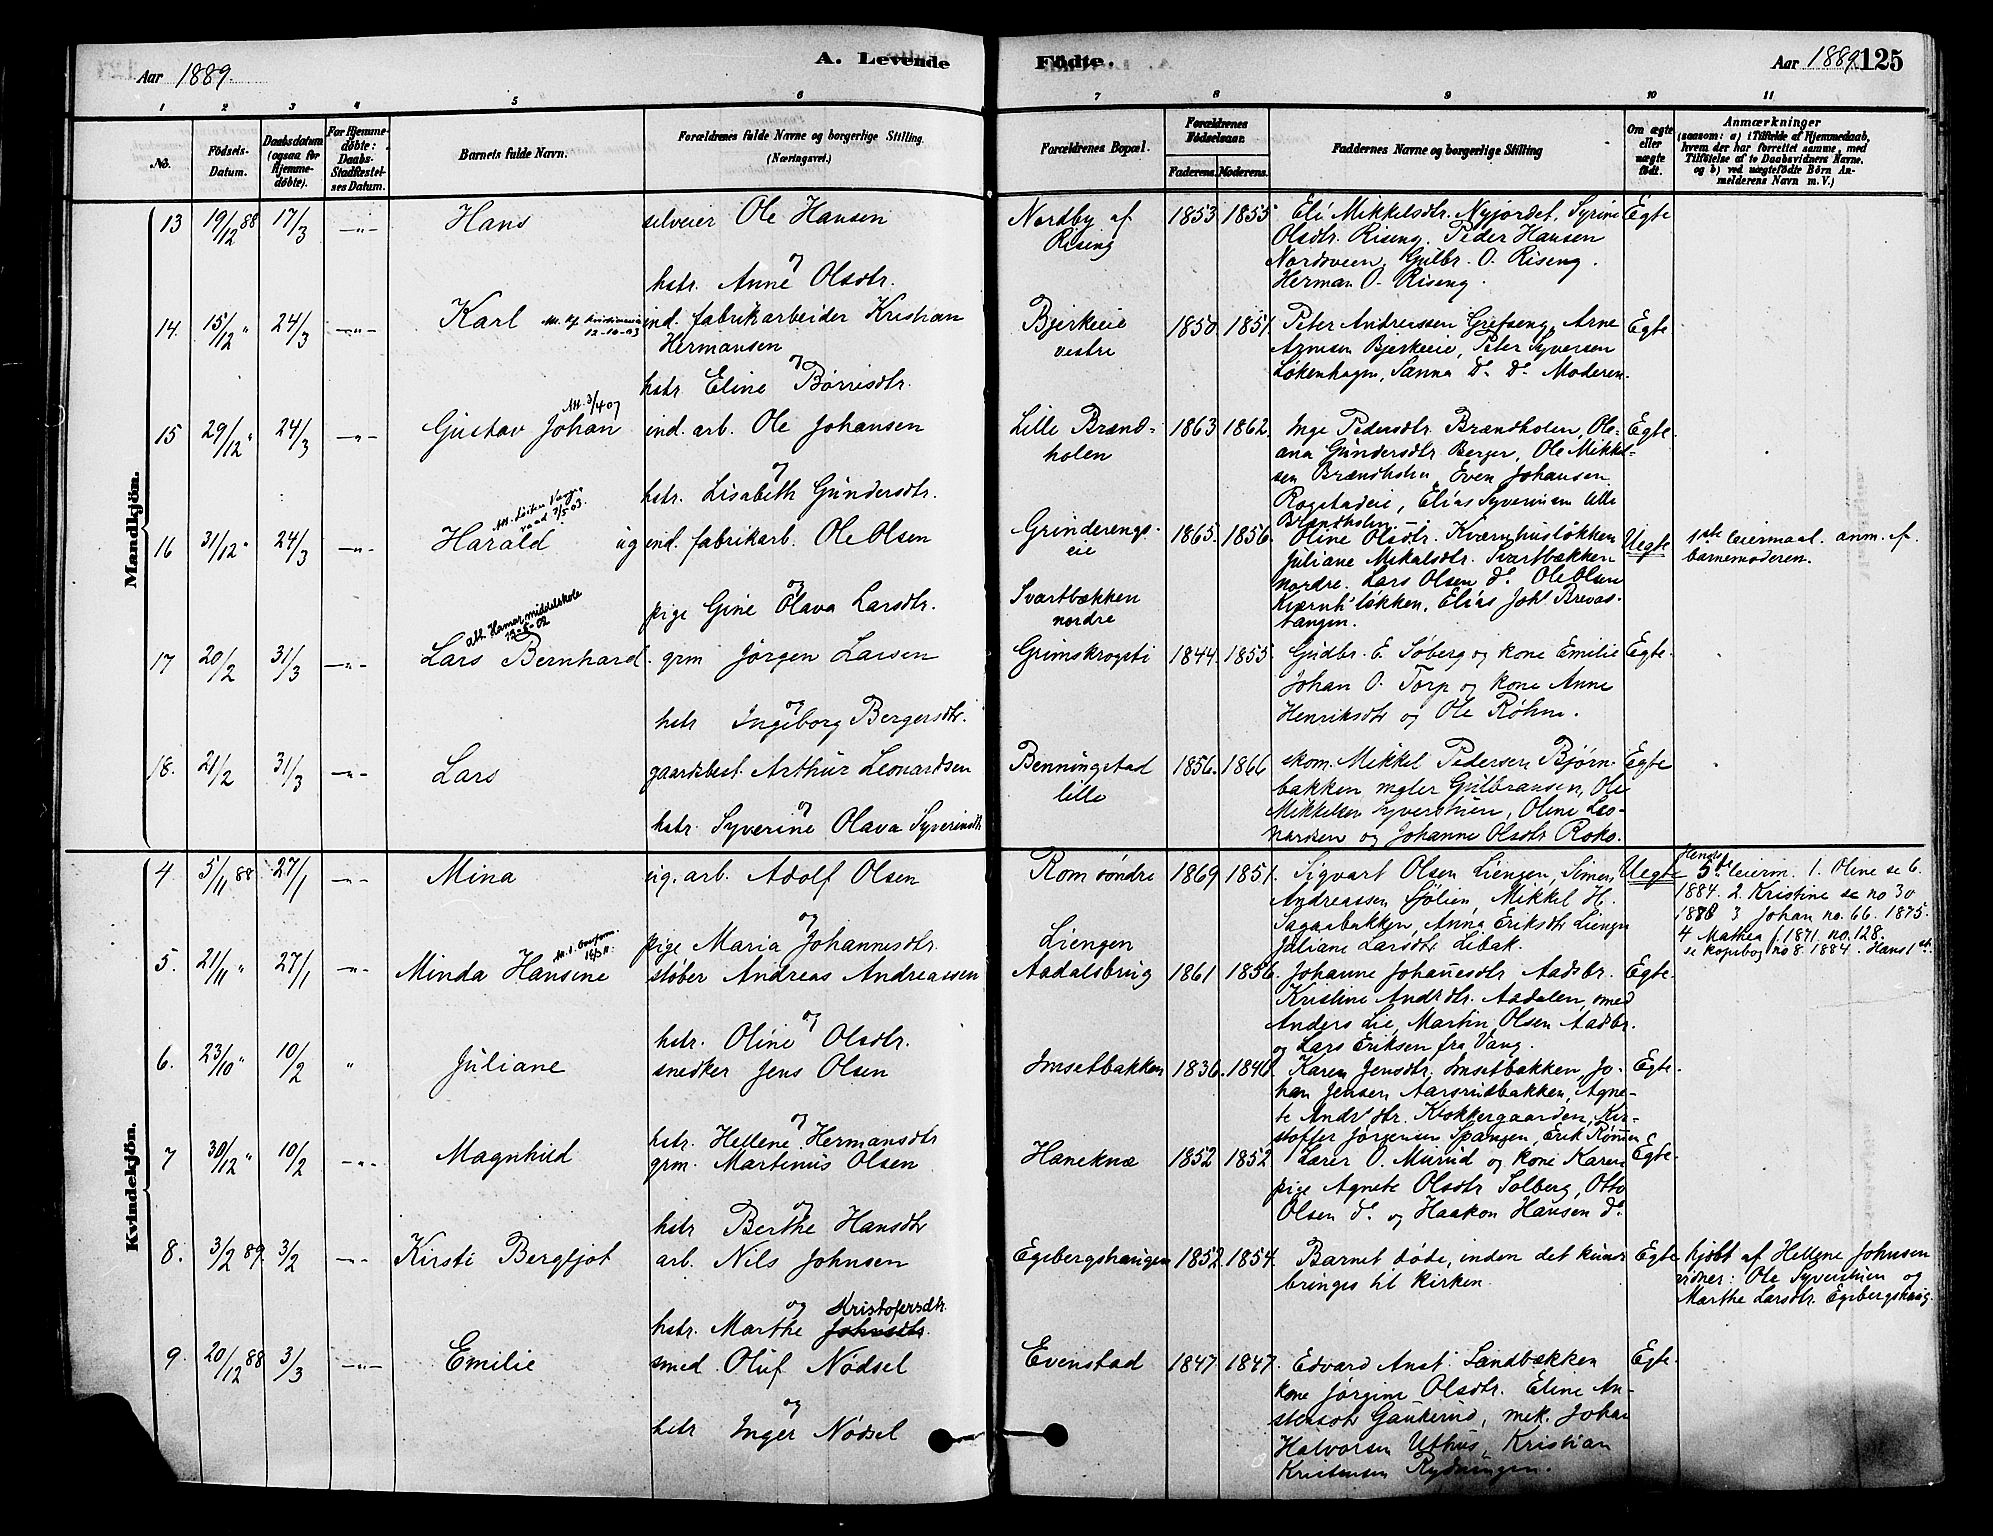 Aar 1889.
A. Levende
Fødte.
Aar 1889
125
1 2 3 4 5 6 7 8 9 10 11
No.
Fødsels-Datum.
Daabsdatum (ogsaa for Hjemmedøbte).
For Hjemmedøbte: Daabs-Stadfæstelses Datum.
Barnets fulde Navn.
Forældrenes fulde Navne og borgerlige Stilling. (Næringsvei.)
Forældrenes Bopæl.
Forældrenes Fødselsaar.
Faderens. Moderens.
Faddernes Navne og borgerlige Stilling
Om ægte eller uægte født.
Anmærkninger
(saasom: a) i Tilfælde af Hjemmedaab, hvem der har forrettet samme, med Tilføielse af to Daabsvidners Navne. og b) ved uægtefødte Børn Anmelderens Navn m. V.)
Mandkjön.
13 19/12 88 17/3 —"— Hans
selveier Ole Hansen
og
hstr. Anne Olsdtr.
Nordby af
Riseng
1853 1855
Eli Mikkelsdtr. Nyjordet, Syrine
Olsdtr. Riseng. Peder Hansen
Nordsveen, Gulbr. O. Riseng.
Herman O. Riseng.
Egte
14. 15/12 " 24/3 —"— Karl
12-10-03
ind. fabrikarbeider Kristian
Hermansen
og
hstr Eline Børrisdtr.
Bjerkeeie
vestre
1850. 1851.
Peter Andreassen Grefseng, Arne
Arnesen Bjerkeeie, Peter Syversen
Løkenhagen, Sanna Do. Do. Moderen.
Egte
15 29/12 " 24/3 —"— Gustav Johan
Att. 3/4 07
ind. arb. Ole Johansen
og
hstr. Lisabeth Gundersdtr.
Lille Brænd-
holen
1863 1862.
Inge Pedersdtr. Brændholen, Ole-
ana Gundersdtr Berger, Ole Mikkel-
sen Brændholen, Even Johansen
Rogstadeie, Elias Syverinsen Lille
Brændholen.
Egte.
16 31/12 " 24/3 —"— Harald
ug ind. fabrikarb. Ole Olsen
og
pige Gine Olava Larsdtr.
Grinderengs-
eie
Svartbækken
nordre
1865. 1856.
Oline Olsdtr. Kværnhusløkken
Juliane Mikalsdtr. Svartbækken
nordre. Lars Olsen Do. Ole Olsen
Kværnh.løkken, Elias Joh. Brevas-
tangen.
Uegte
1ste leiermaal. anm. af
barnemoderen.
17 20/2 31/3 —"— Lars Bernhard.
Att. Hamar middelskole
grm Jørgen Larsen
og
hstr Ingeborg Bergersdtr.
Grimskrogsti
1844. 1855
Gudbr. E. Søberg og kone Emilie
Johan O. Torp og kone Anne
Henriksdtr og Ole Røhne.
Egte.
18. 21/2 31/3 —"— Lars
gaardsbest. Arthur Leonardsen
og
hstr. Syverine Olava Syverinsdtr
Benningstad
lille
1856. 1866
skom. Mikkel Pedersen Bjørn-
bakken mgler Gulbransen, Ole
Mikkelsen Syverstuen, Oline Leo-
nardsen og Johanne Olsdtr Roko.
Egte
Kvindekjön.
4 5/11 88 27/1 —"— Mina
ug. arb. Adolf Olsen
og
pige Maria Johannesdtr.
Rom søndre
Liengen
1869 1851.
Sigvart Olsen Liengen, Simen
Andreassen Sjølien, Mikkel H.
Sagaabakken, Anna Eriksdtr Liengen
Juliane Larsdtr Libak.
Uegte
Hendes
5te leierm. 1. Oline se 6.
1884. 2. Kristine se no 30
1878 3 Johan no. 66. 1875.
4 Mathea f. 1871 no. 128.
se kopibog no 8. 1884. Hans 1ste.
5. 21/11 " 27/1 —"— Minda Hansine
støber Andreas Andreassen
og
hstr. Oline Olsdtr.
Aadalsbrug
1861 1856.
Johanne Johannesdtr Aadsbr.
Kristine Andrdtr. Aadalen, smed
Anders Lie, Martin Olsen Aadbr.
og Lars Eriksen fra Vang.
Egte.
6. 23/10 " 10/2 " Juliane
snedker Jens Olsen
og
hstr. Hellene Hermansdtr
Imsetbakken
1836. 1846
Karen Jensdtr. Imsetbakken, Jo-
han Jensen Aarsrudbakken, Agne-
te Andrdtr. Klokkergaarden, Kri-
stoffer Jørgensen Spangen, Erik Rønsen
Egte.
7 30/12 " 10/2 —"— Magnhild
grm. Martinus Olsen
og
hstr Berthe Hansdtr
Haneknæ
1852 1852
Larer O. Murud og kone Karen
pige Agnete Olsdtr Solberg, Otto
Olsen Do. og Haakon Hansen Do.
Egte.
8. 3/2 89. 3/2 —"— Kirsti Bergljot
arb. Nils Johnsen
og Kristofersdtr.
hstr. Marthe Johnsdtr.
Egebergshaugen
1852. 1854.
Barnet døde, inden det kunde
bringes til kirken.
Egte
hjdbt af Hellene Johnsen
vidner: Ole Syverstuen og
Marthe Larsdtr. Egebergshaug.
9. 20/12 88 3/3 —"— Emilie
smed Oluf Nødsel
og
hstr Inger Nødsel
Evenstad
1847. 1847.
Edvard Anst. Sandbækken
kone Jørgine Olsdtr. Eline An-
stensdtr Gaukerud, mek. Johan
Halvorsen Uthus, Kristian
Kristensen Rydningen.
Egte.